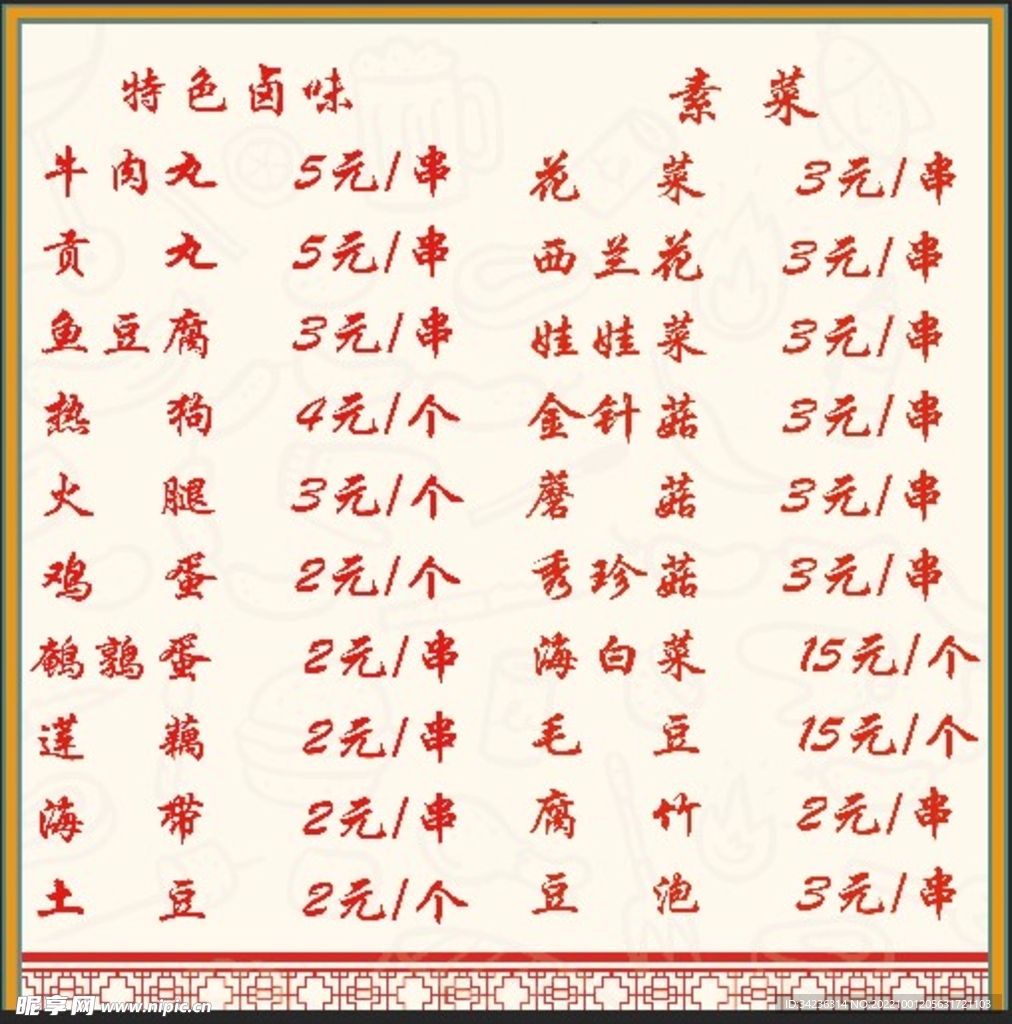 特色卤味
牛肉丸 5元/串
贡丸 5元/串
鱼豆腐 3元/串
热狗 4元/个
火腿 3元/个
鸡蛋 2元/个
鹌鹑蛋 2元/串
莲藕 2元/串
海带 2元/串
土豆 2元/个
素菜
花菜 3元/串
西兰花 3元/串
娃娃菜 3元/串
金针菇 3元/串
蘑菇 3元/串
秀珍菇 3元/串
海白菜 15元/个
毛豆 15元/个
腐竹 2元/串
豆泡 3元/串
昵享网 www.nipic.cn
ID:34236314 NO:20221001205631721103